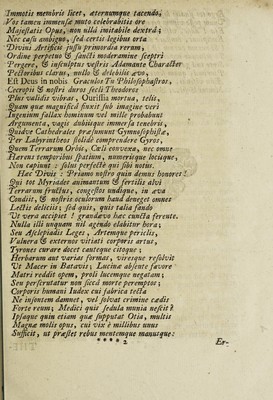 Immotis membris licet, æternumque tacendo,
Vos tamen immensæ muto celebrabitis ore
Majestatis Opus, non ullâ imitabile dextrâ;
Nec casu ambiguo, sed certi legibus orta
Divini Artificis jussu primordia rerum,
Ordine perpetuo & sancti moderamine sceptri
Pergere, & insculptus vestris Adamante Character
Pectoribus clarus, nullo & delebilis ævo,
Est Deus in nobis. Graculos Tu Philosophastros,
Cecropii & nostri duros secli Theodoros
Plus validis vibrar, Ourissia mortua, telis,
Quam quæ magnificâ finxit sub imagine veri
Ingenium fallax hominum vel mille probabunt
Argumenta, vagis dubiisque immersa tenebris,
Quidve Cathedrales præsumunt Gymnosophistæ,
Per Labyrintheos stolidè comprendere Gyros,
Quem Terrarum Orbis, Cœli convexa, nec omne
Harens temporibus spatium, numerisque locique,
Non capiunt: solus perfectè qui sibi notus.
Hæc Divis: Priamo nostro quin demus honores?
Qui tot Myriades animantum & fertilis alvi
Terrarum fructus, congestos undique, in æva
Condit, & nostris oculorum haud deneget omnes
Lectis deliciis; sed quis, quis talia fando
Ut vera accipiet? grandævo hæc cuncta ferente.
Nulla illi unquam nil agendo elabitur hora;
Seu Asclepiadis Leges, Artemque periclis,
Vulnera & externo vitiati corporis artus,
Tyrones curare docet cauteque citoque:
Herbarum aut varias formas, viresque resolvit
Ut Macer in Batavis; Lucinæ absente favore
Matri reddit opem, proli lucemque negatam;
Seu perscrutatur non siccâ morte peremptos;
Corporis humani Iudex cui fabrica tecta
Ne insontem damnet, vel solvat crimine cædis
Forte reum; Medici quis sedula munia nescit?
Ipsaque quin etiam quæ supputat Otia, multis
Magnæ molis opus, cui vix è millibus unus
Sufficit, ut præstet rebus mentemque manusque:
**** 2 Er-